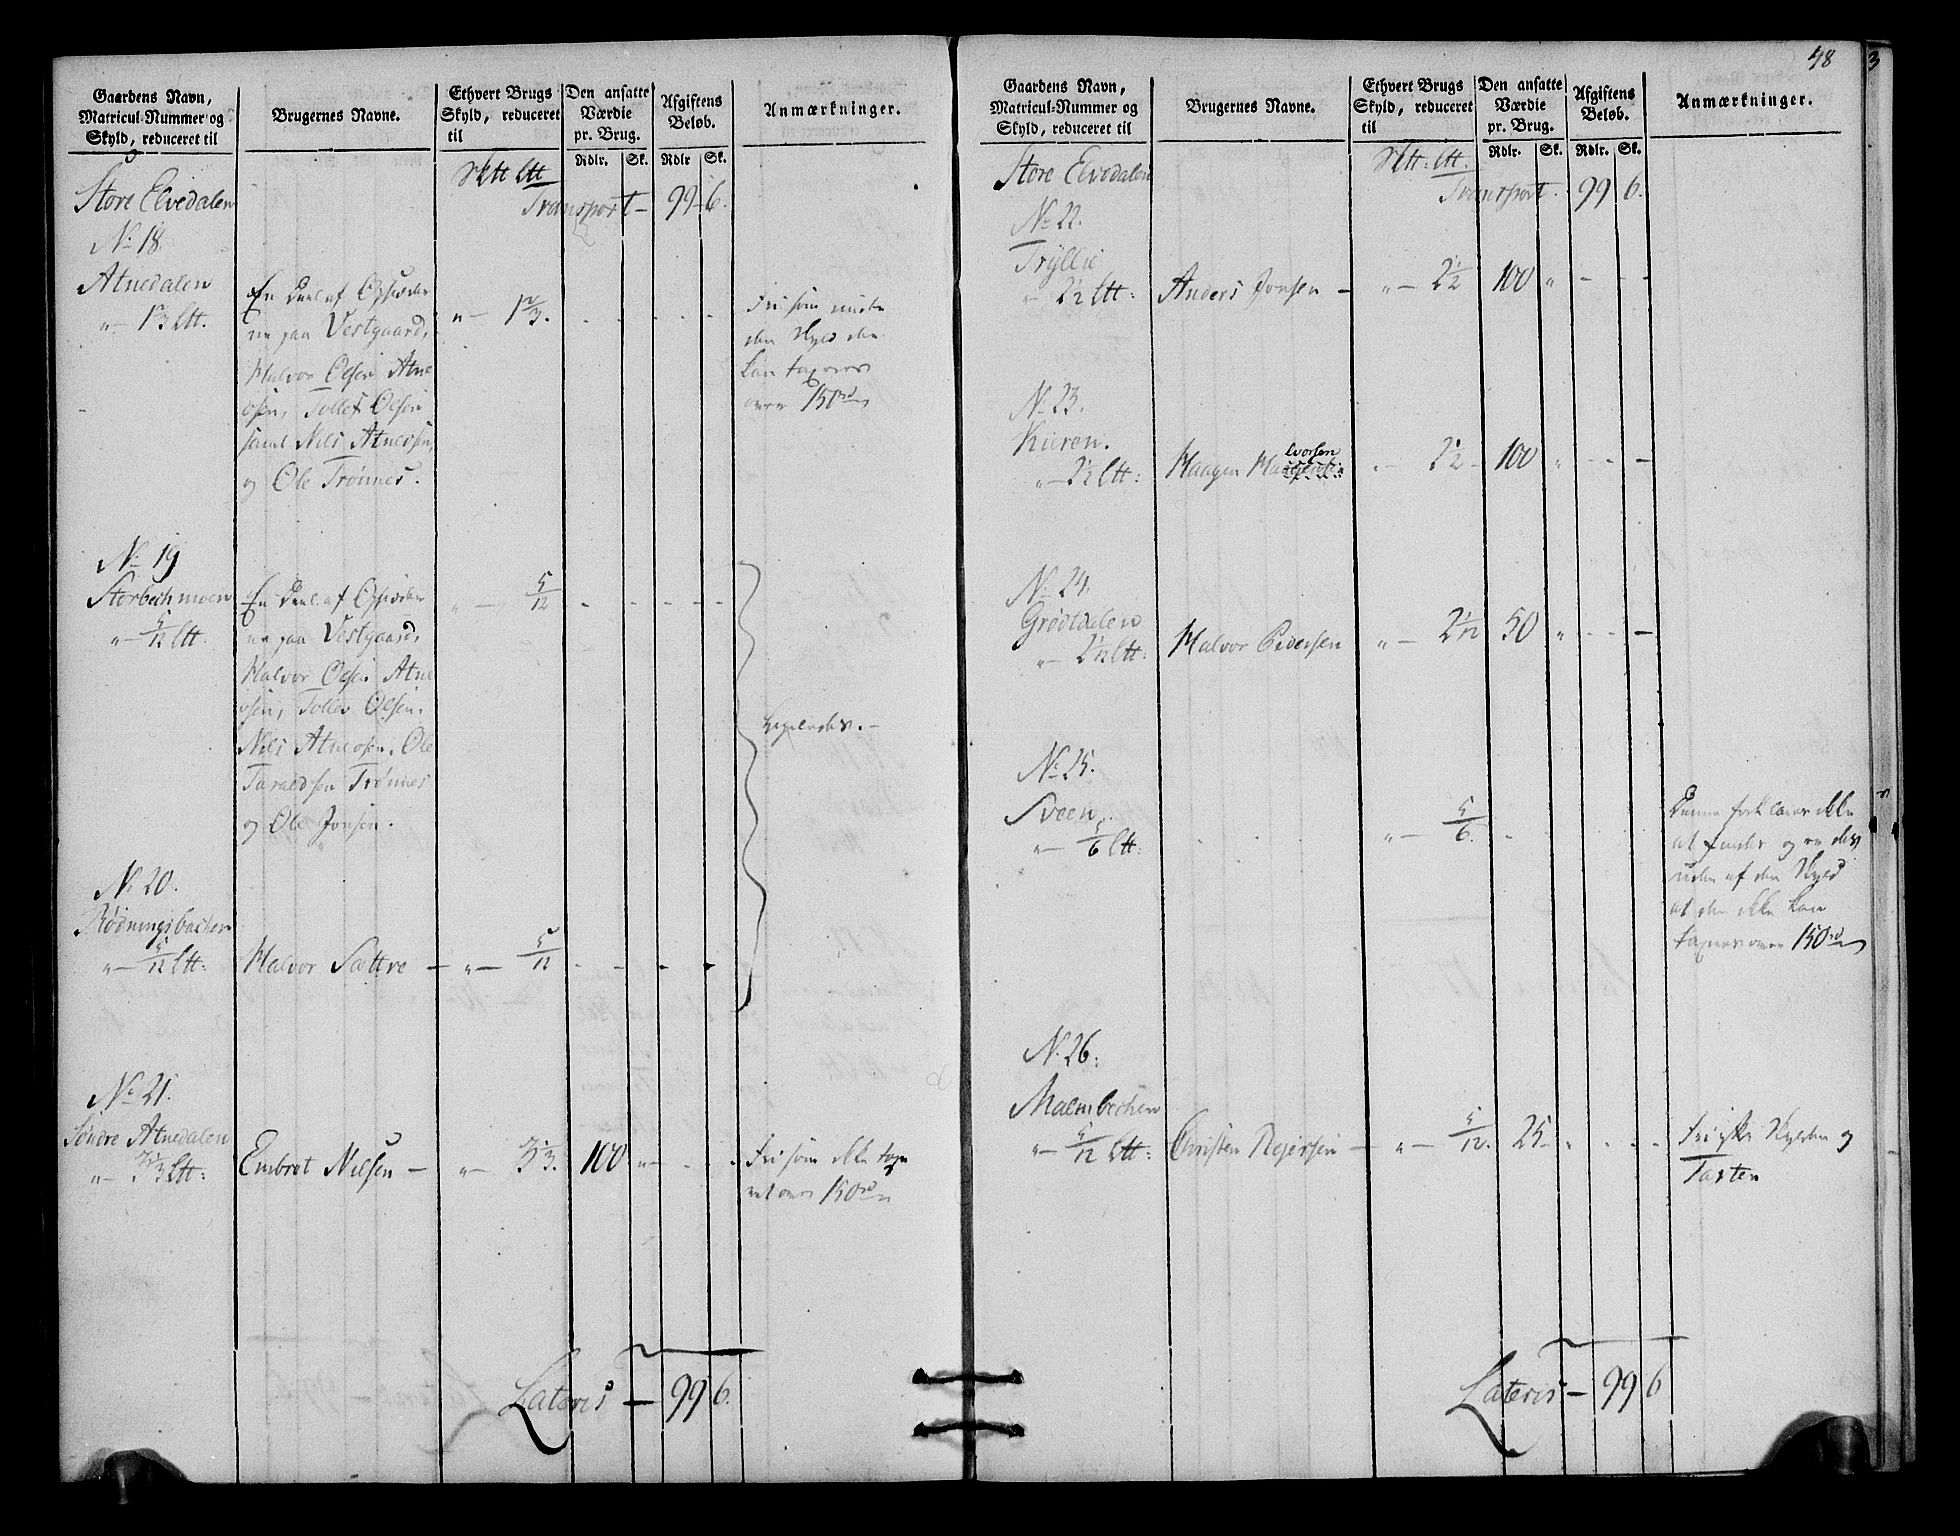 Gaardens Navn,
Matricul-Nummer og
Skyld, reduceret til
Brugernes Navne.
Ethvert Brugs
Skyld, reduceret
til
Den ansatte
Værdie
pr. Brug.
Rdlr. Sk.
Afgiftens
Beløb.
Rdlr Sk.
Anmærkninger.
Store Elvedalen
Transport - 99 - 6.
No 18.
Atnedalen
" - 1 2/3 Ltt.
En Deel af Opsidder
ne paa Vestgaard,
Halvor Olsen Atne
osen, Tollef Olsen
samt Nils Atneosen,
og Ole Trønnes.
" - 1 2/3.
Fri som
den Skyld den
kan taxeres
over 150 rd
No 19
Storbechmoen
" - 5/12 Ltt.
En Deel af Opsidder
ne paa Vestgaard,
Halvor Olsen Atne
osen, Tollev Olsen.
Nils Atneosen. Ole
Taraldsen Trønnes
og Ole Jonsen.
" - 5/12
Ligeledes. -
No 20.
Rødningsbachen
" - 5/12 Ltt:
Halvor Sættre - " - 5/12
No 21.
Søndre Atnedalen
" - 3 1/3 Ltt:
Embret Nilsen - " - 3 1/3. 100 " -
Fri som ikke taxe
ret over 150 rd
Lateris - 99 6.
48
Gaardens Navn,
Matricul-Nummer og
Skyld, reduceret til
Brugernes Navne.
Ethvert Brugs
Skyld, reduceret
til
Den ansatte
Værdie
pr. Brug.
Rdlr. Sk.
Afgiftens
Beløb.
Rdlr. Sk.
Anmærkninger.
Store Elvedalen
Transport. 99 6.
No 22.
Tryllie
" 2 1/2 Ltt:
Anders Jonsen - " - 2 1/2 100 " -
No 23.
Kieren.
" - 2 1/2 Ltt:
Haagen Halvorsen - 2 1/2 - 100 "
No 24.
Grøttdalen
" - 2 1/12 Ltt:
Halvor Pedersen " - 2 1/12 50 "
No 25.
Sveen
" - 5/6 Ltt:
" - 5/6.
Denne forklares ikke
at findes og er des
uden af den Skyld
at den ikke kan
taxeres over 150 rd
No 26:
Malmbechen
" - 5/12 Ltt:
Christen - " - 5/12. 25 -
Fri efter Skylden og
Taxten
Lateris - 99 6